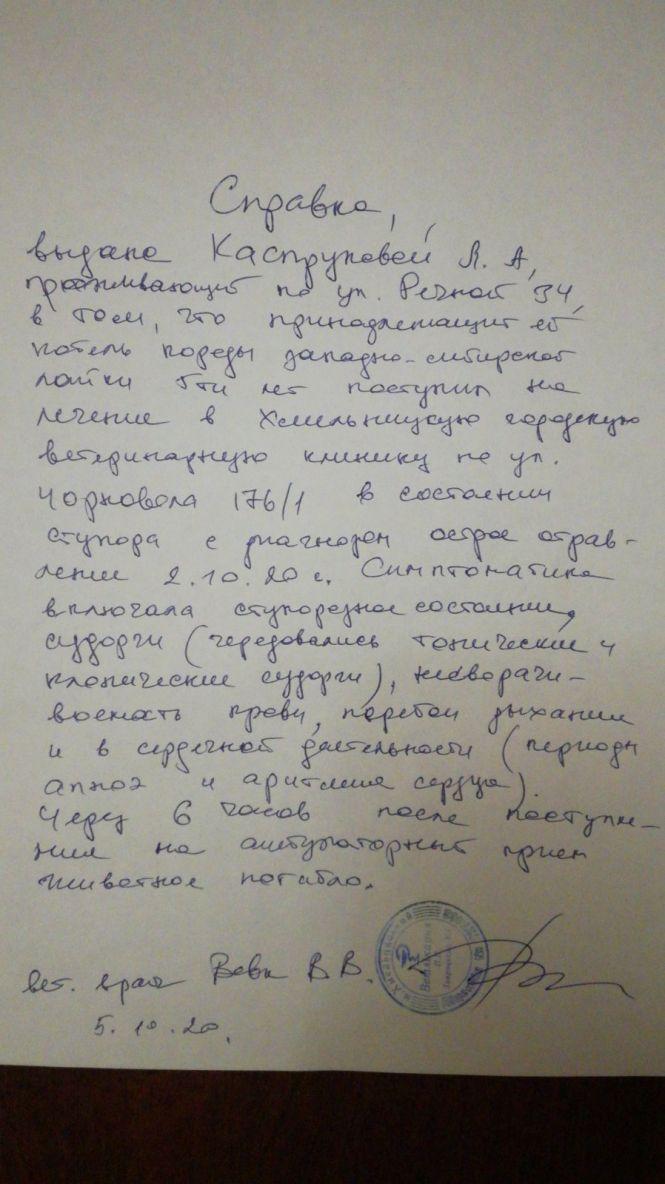 Справка,
выдана Каспруковей Л. А,
проживающей по ул. Речной 34,
в том, что принадлежащий ей
кобель породы западно-сибирской
лайки 5ти лет поступил на
лечение в Хмельницкую городскую
ветеринарную клинику по ул.
Чорновола 176/1 в состоянии
ступора с диагнозом острое отрав-
ление 2.10.20 г. Симптоматика
включала ступорозное состояние,
судорги (чередовались тонические и
клонические судорги), несворачи-
ваемость крови, перебои дыхании
и в сердечной деятельности (периоды
апноэ и аритмия сердца).
Через 6 часов после поступле-
ния на амбулаторный прием
животное погибло.
вет. врач Вовк В В.
5. 10. 20.